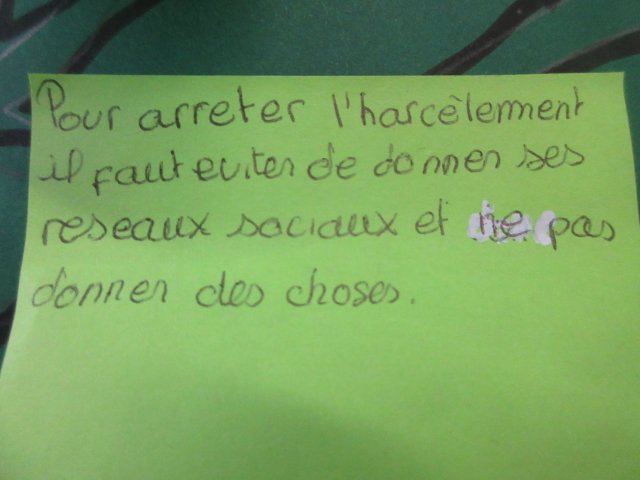 Pour arreter l'harcèlenment
il faut eviter de donner ses
reseaux sociaux et ne pas
donner des choses.